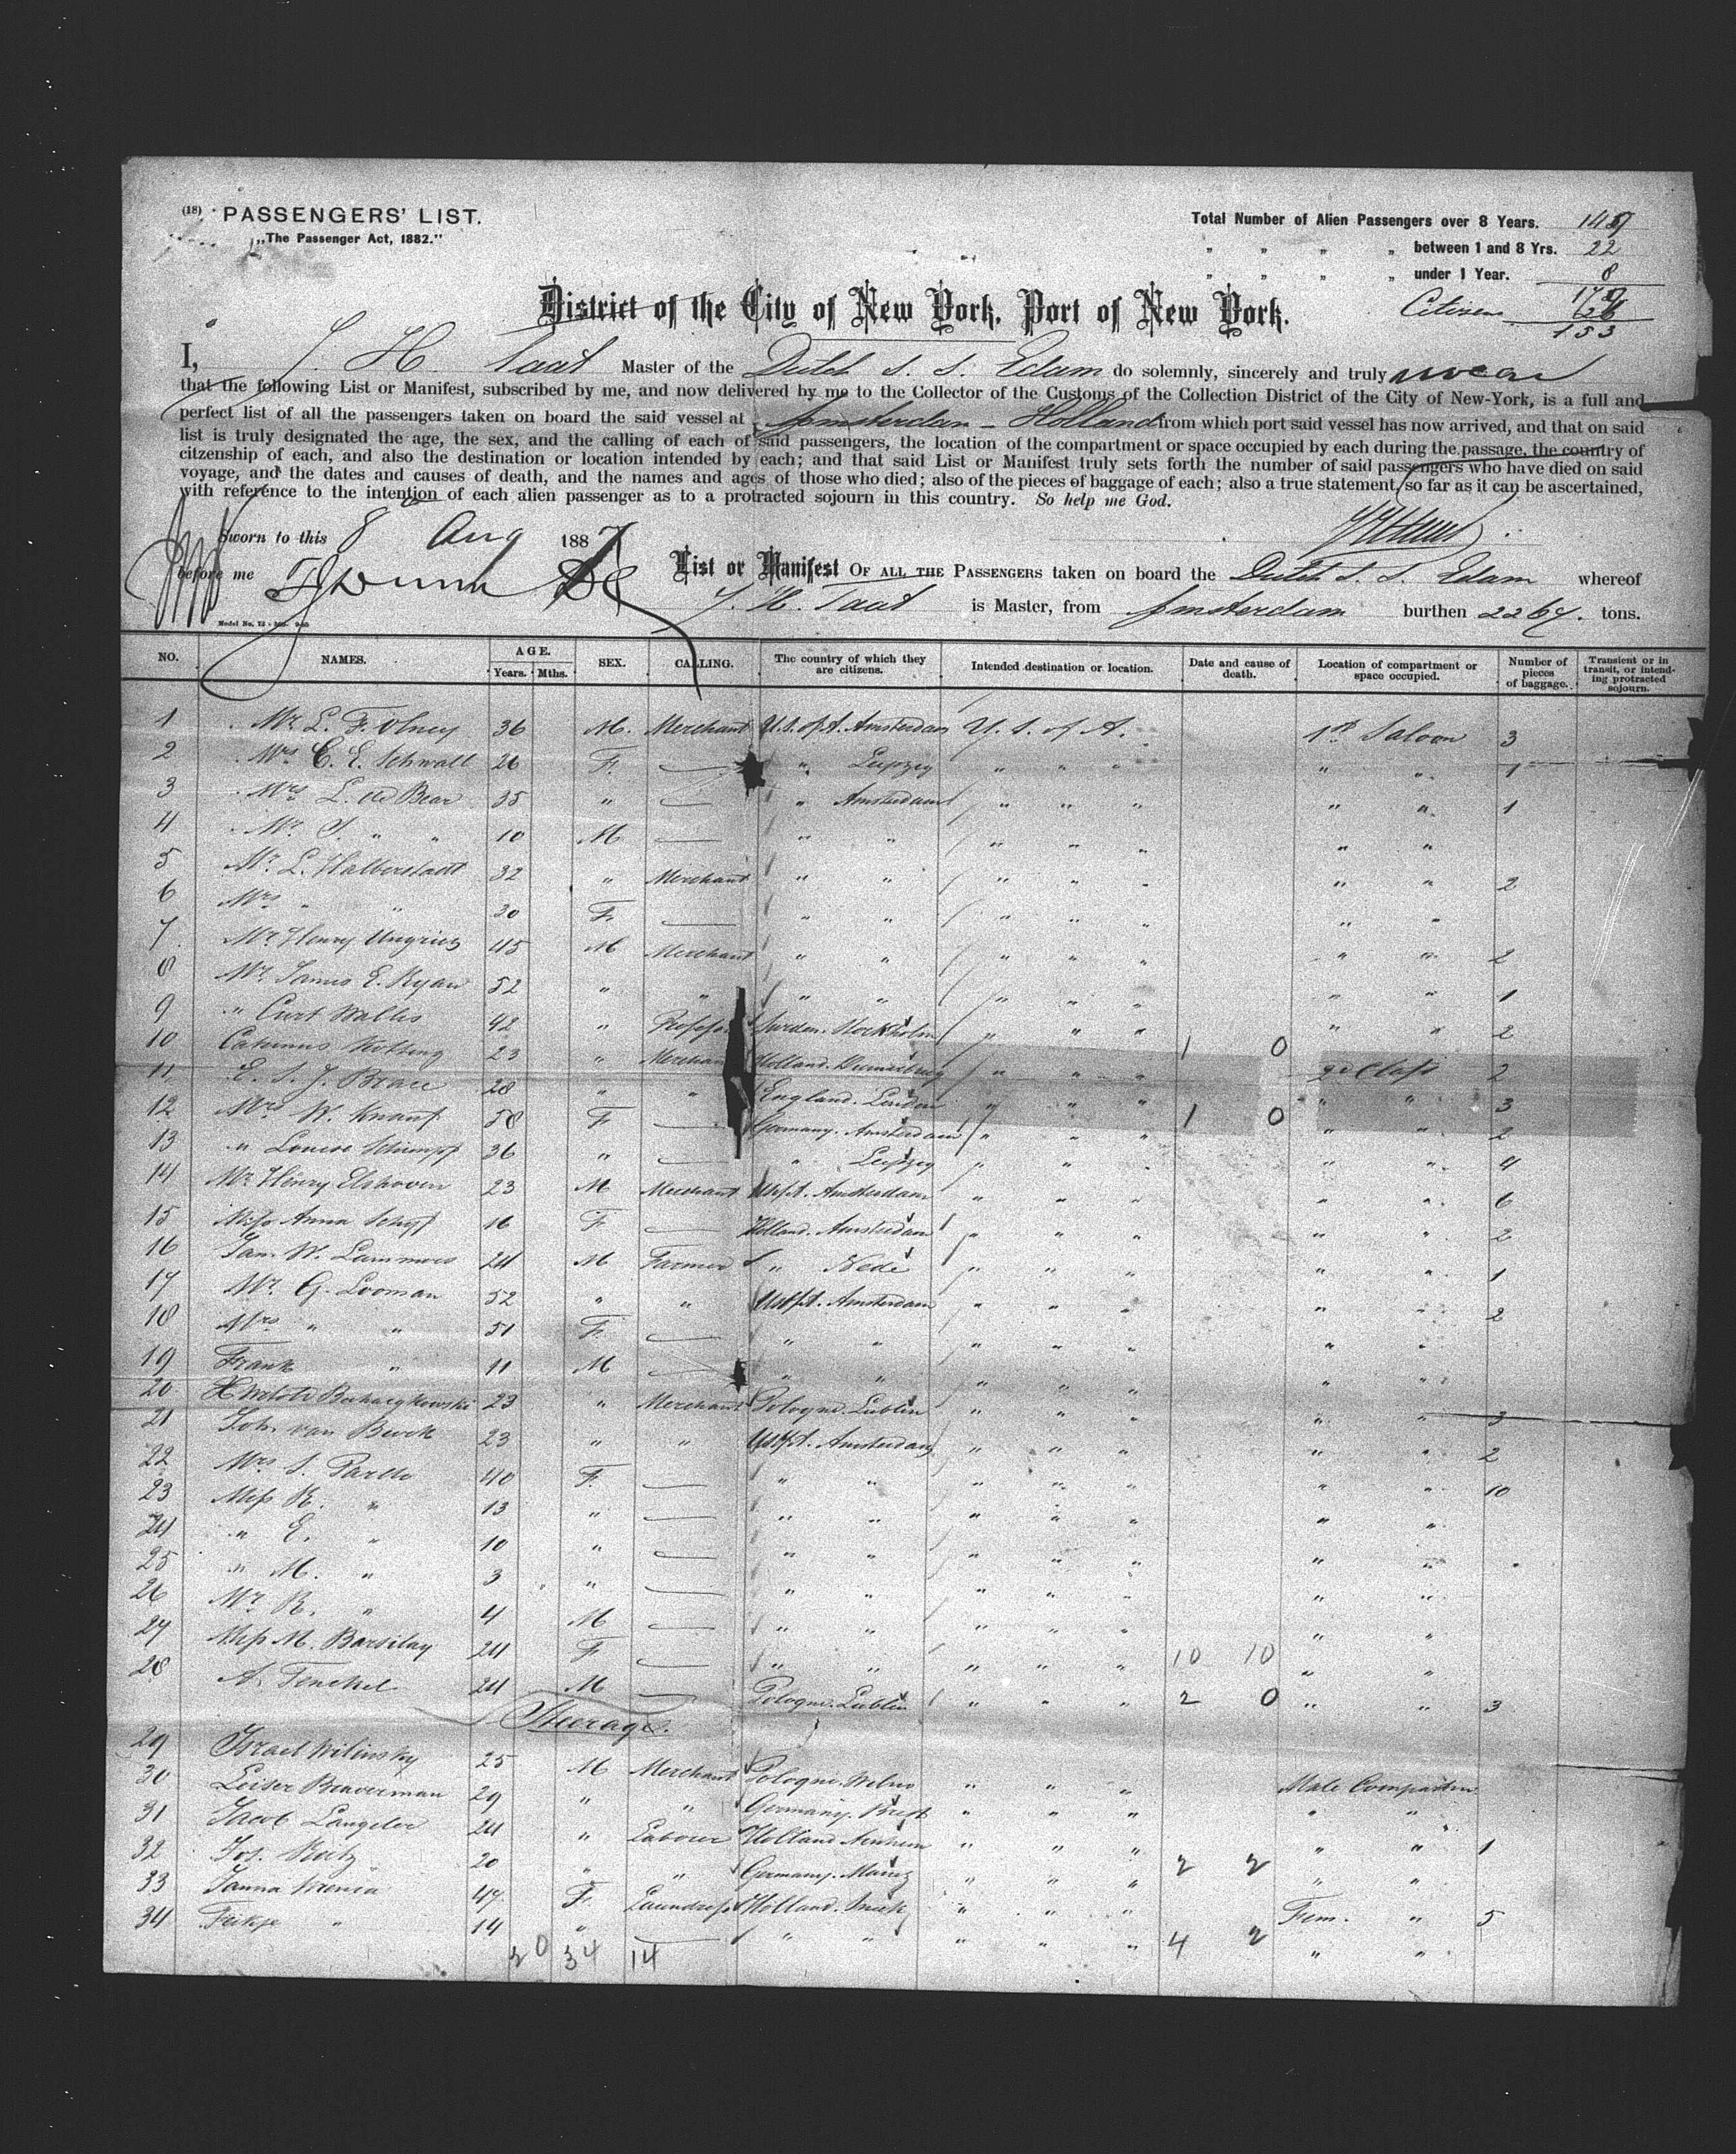 (18) PASSENGERS' LIST.
„The Passenger Act, 1882."
Total Number of Alien Passengers over 8 Years.
„ „ „ „ between 1 and 8 Yrs. 22
„ „ „ „ under 1 Year. 8
Citizens 26
153
District of the City of New York, Port of New York.
I, J. H. Taat Master of the Dutch S. S. Edam do solemnly, sincerely and truly swear
that the following List or Manifest, subscribed by me, and now delivered by me to the Collector of the Customs of the Collection District of the City of New-York, is a full and
perfect list of all the passengers taken on board the said vessel at Amsterdam - Holland from which port said vessel has now arrived, and that on said
list is truly designated the age, the sex, and the calling of each of said passengers, the location of the compartment or space occupied by each during the passage, the country of
citzenship of each, and also the destination or location intended by each; and that said List or Manifest truly sets forth the number of said passengers who have died on said
voyage, and the dates and causes of death, and the names and ages of those who died; also of the pieces of baggage of each; also a true statement, so far as it can be ascertained,
with reference to the intention of each alien passenger as to a protracted sojourn in this country. So help me God.
Sworn to this 8 Aug 1887
before me
List or Manifest OF ALL THE PASSENGERS taken on board the Dutch S. S. Edam whereof
J. H. Taat is Master, from Amsterdam burthen 2267. tons.
NO. NAMES. AGE. Years. Mths. SEX. CALLING. The country of which they are citizens. Intended destination or location. Date and cause of death. Location of compartment or space occupied. Number of pieces of baggage. Transient or in transit, or intending protracted sojourn.
1 Mr. L. F. Olney 36 M. Merchant U.S. of A. Amsterdam U. S. of A. 1st Saloon 3
2 Mrs. C. E. Schwall 26 F. — " Leipzig " " " " " 1
3 Mrs. L. de Bear 35 " — " Amsterdam " " " " " 1
4 Mr. S. " " 10 M — " " " " " " "
5 Mr. L. Halberstadt 32 " Merchant " " " " " " " 2
6 Mrs. " " 30 F. — " " " " " " "
7 Mr. Henry 45 M Merchant " " " " " " " 2
8 Mr. James E. Ryan 52 " " " " " " " " " 1
9 " Curt Wallis 42 " Professor Sweden. Stockholm " " " " " 2
10 23 " Merchant Holland. " " " 1 0 2d Class 2
11 E. S. J. 28 " " England. London " " " " " 3
12 Mrs. W. Knauf 58 F. — Germany. Amsterdam " " " 1 0 " " 2
13 " Louise Schimpf 36 " — " Leipzig " " " " " 4
14 Mr. Henry Elshoven 23 M Merchant U.S. of A. Amsterdam " " " " " 6
15 Miss Anna Schyf 16 F. — Holland. Amsterdam " " " " " 2
16 Jan W. Lammers 24 M Farmer " Nede " " " " " 1
17 Mr. G. Looman 52 " " U.S. of A. Amsterdam " " " " " 2
18 Mrs. " " 51 F. — " " " " " " "
19 Frank " 11 M — " " " " " " "
20 23 " Merchant Pologne. Lublin " " " " " 3
21 Joh. van Beuk 23 " " U.S. of A. Amsterdam " " " " " 2
22 Mrs. S. 40 F. — " " " " " " " 10
23 Miss R. " 13 " — " " " " " " "
24 " E. " 10 " — " " " " " " "
25 " M. " 3 " — " " " " " " "
26 Mr. R. " 4 M — " " " " " " "
27 Miss M. Barsilay 24 F. — " " " " " 10 10 " "
28 A. Fenchel 24 M — Pologne. Lublin " " " 2 0 " " 3
Steerage.
29 Israel Wilinsky 25 M Merchant Pologne. Wilno " " " Male Compartm
30 Leiser 29 " " Germany. " " " " "
31 Jacob Langeler 24 " Laborer Holland Arnhem " " " " " 1
32 Jos. 20 " " Germany. Mainz " " " 2 2 " "
33 47 F. Laundress Holland. " " " Fem. " 5
34 " 14 " — " " " " " 4 2 " "
20 34 14